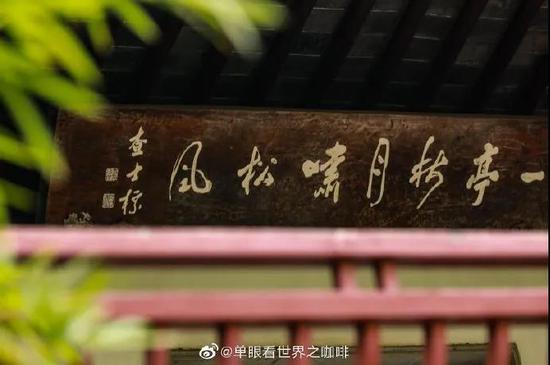 一亭秋月嘯松風
查士標
@单眼看世界之咖啡